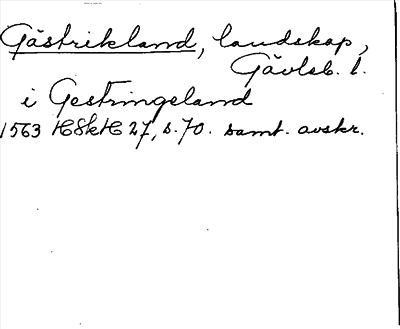 Gästrikland, landskap,
Gävleb. l.
i Gestringeland
1563 HSkH 27, s. 70. samt. avskr.